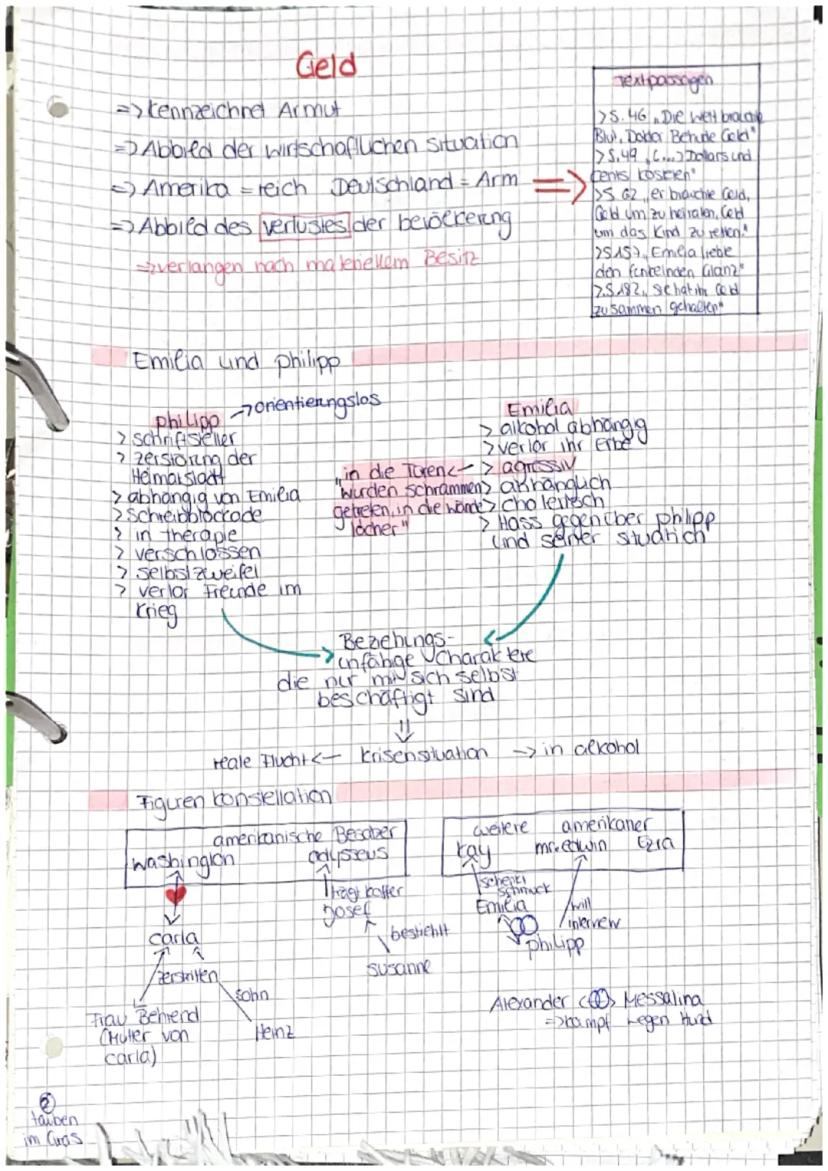 Geld
=> kennzeichnet Armut
=> Abbild der wirtschaftlichen situation
=> Amerika = reich Deutschland = Arm =>
=> Abbild des verlustes der bevölkerung
=> verlangen nach materiellem Besitz
Textpassagen
> S. 46 „Die Welt brauch
Blut, Doktor Behude Geld"
> S.49 „(...) Dollars und
cents kosteten"
> S. 62 „er brauchte Geld,
Geld um zu heiraten, Geld
um das Kind zu retten."
> S.157 „Emilia liebte
den funkelnden Glanz"
> S.182 „Sie hat ihr Geld
zusammen gehalten"
Emilia und philipp
philipp -> orientierungslos
> schriftsteller
> zerstörung der
Heimatstadt
> abhängig von Emilia
> Schreibblockade
> in therapie
> verschlossen
> selbstzweifel
> verlor Freunde im
Krieg
Emilia
> alkohol abhängig
> verlor ihr Erbe
> agressiv
> anhänglich
> cholerisch
> Hass gegenüber philipp
und seiner
"in die Türen <-
wurden schrammen
getreten, in die wände
löcher"
Beziehungs-
unfähige Charaktere
die nur mit sich selbst
beschäftigt sind
reale Flucht <- Krisensituation -> in alkohol
Figuren konstellation
amerikanische Besatzer
washington odysseus
weitere amerikaner
Kay mr.edwin Ezra
trägt koffer
Josef
bestiehlt
susanne
schenkt
schmuck
Emilia
will
interview
philipp
carla
zerstritten
sohn
Frau Behrend
(Mutter von
carla)
Heinz
Alexander Messalina
=> kampf wegen Hund
2
tauben
im Gras